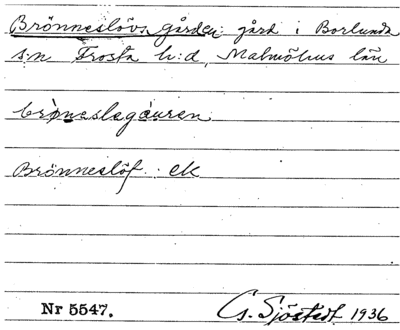 Brönneslövsgården: gård i Borlunda
sn Frosta h:d, Malmöhus län
Brönneslöf: ek
Nr 5547.
G. Sjöstedt 1936